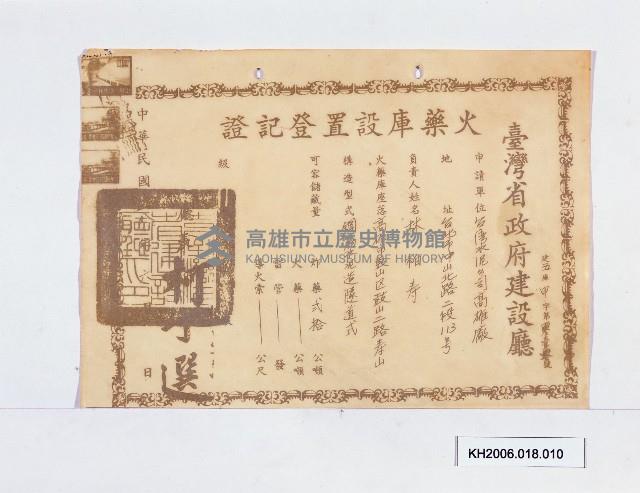 臺灣省政府建設廳
火藥庫設置登記證
申請單位台灣水泥公司高雄廠
地址台北市中山北路二段113号
負責人姓名林柏寿
火藥庫座落高雄市鼓山区鼓山二路寿山
構造型式鋼筋混泥造隧道式
可容儲藏量
炸藥弍拾公噸
火藥——公噸
雷管——發
導火索——公尺
級
廳長
中華民國
日
高雄市立歷史博物館
KAOHSIUNG MUSEUM OF HISTORY
KH2006.018.010